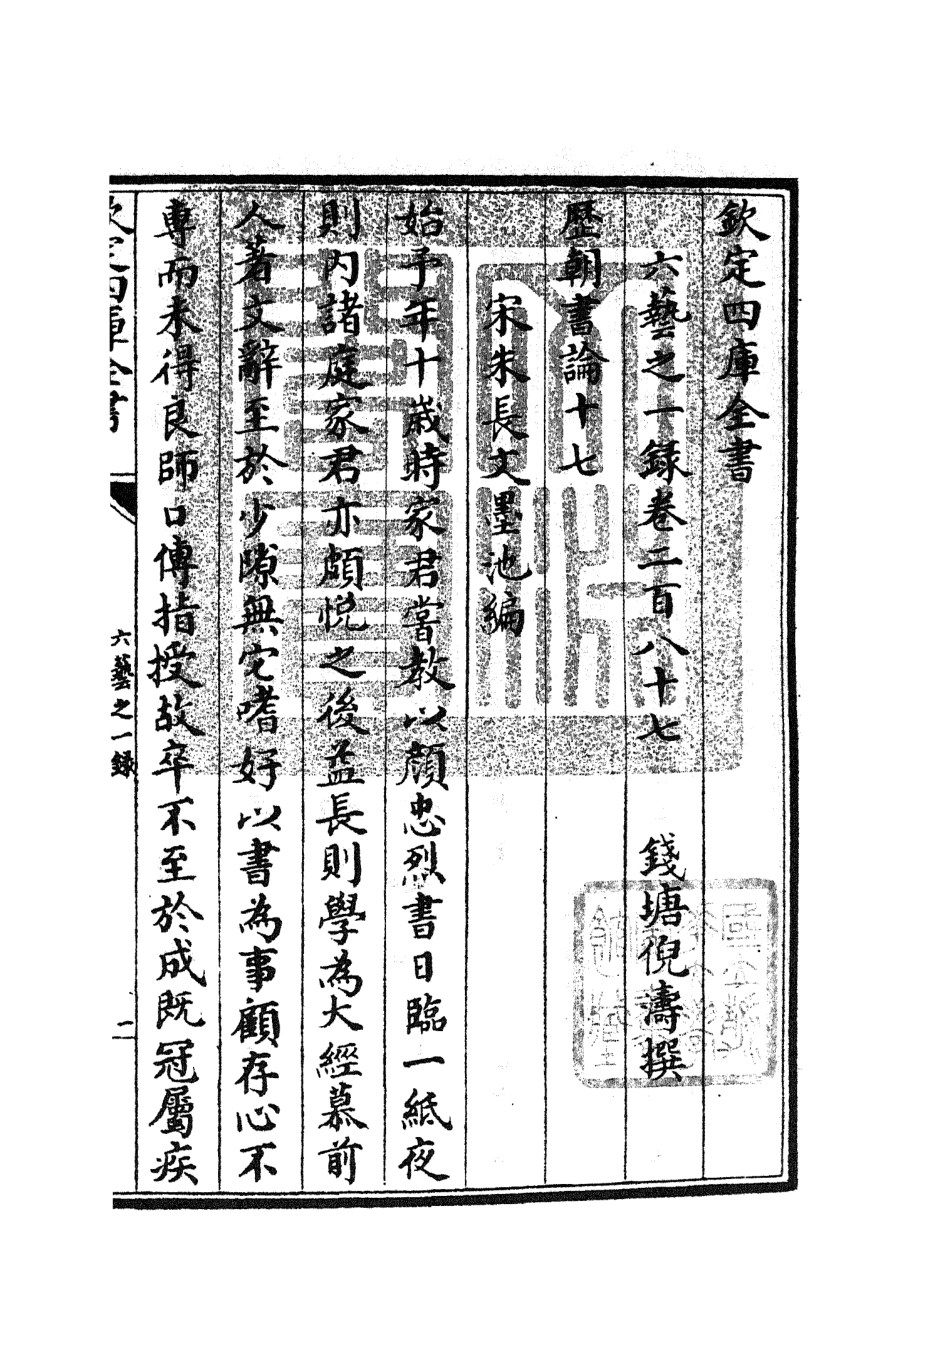 欽定四庫全書
六藝之一録卷二百八十七 錢塘倪濤撰
歷朝書論十七
宋朱長文墨池編
始予年十歲時家君嘗教以顔忠烈書日臨一紙夜
則内諸庭家君亦頗悦之後益長則學為大經慕前
人著文辭至於少隙無它嗜好以書為事顧存心不
專而未得良師口傳指授故卒不至於成既冠屬疾
欽定四庫全書
六藝之一録
二